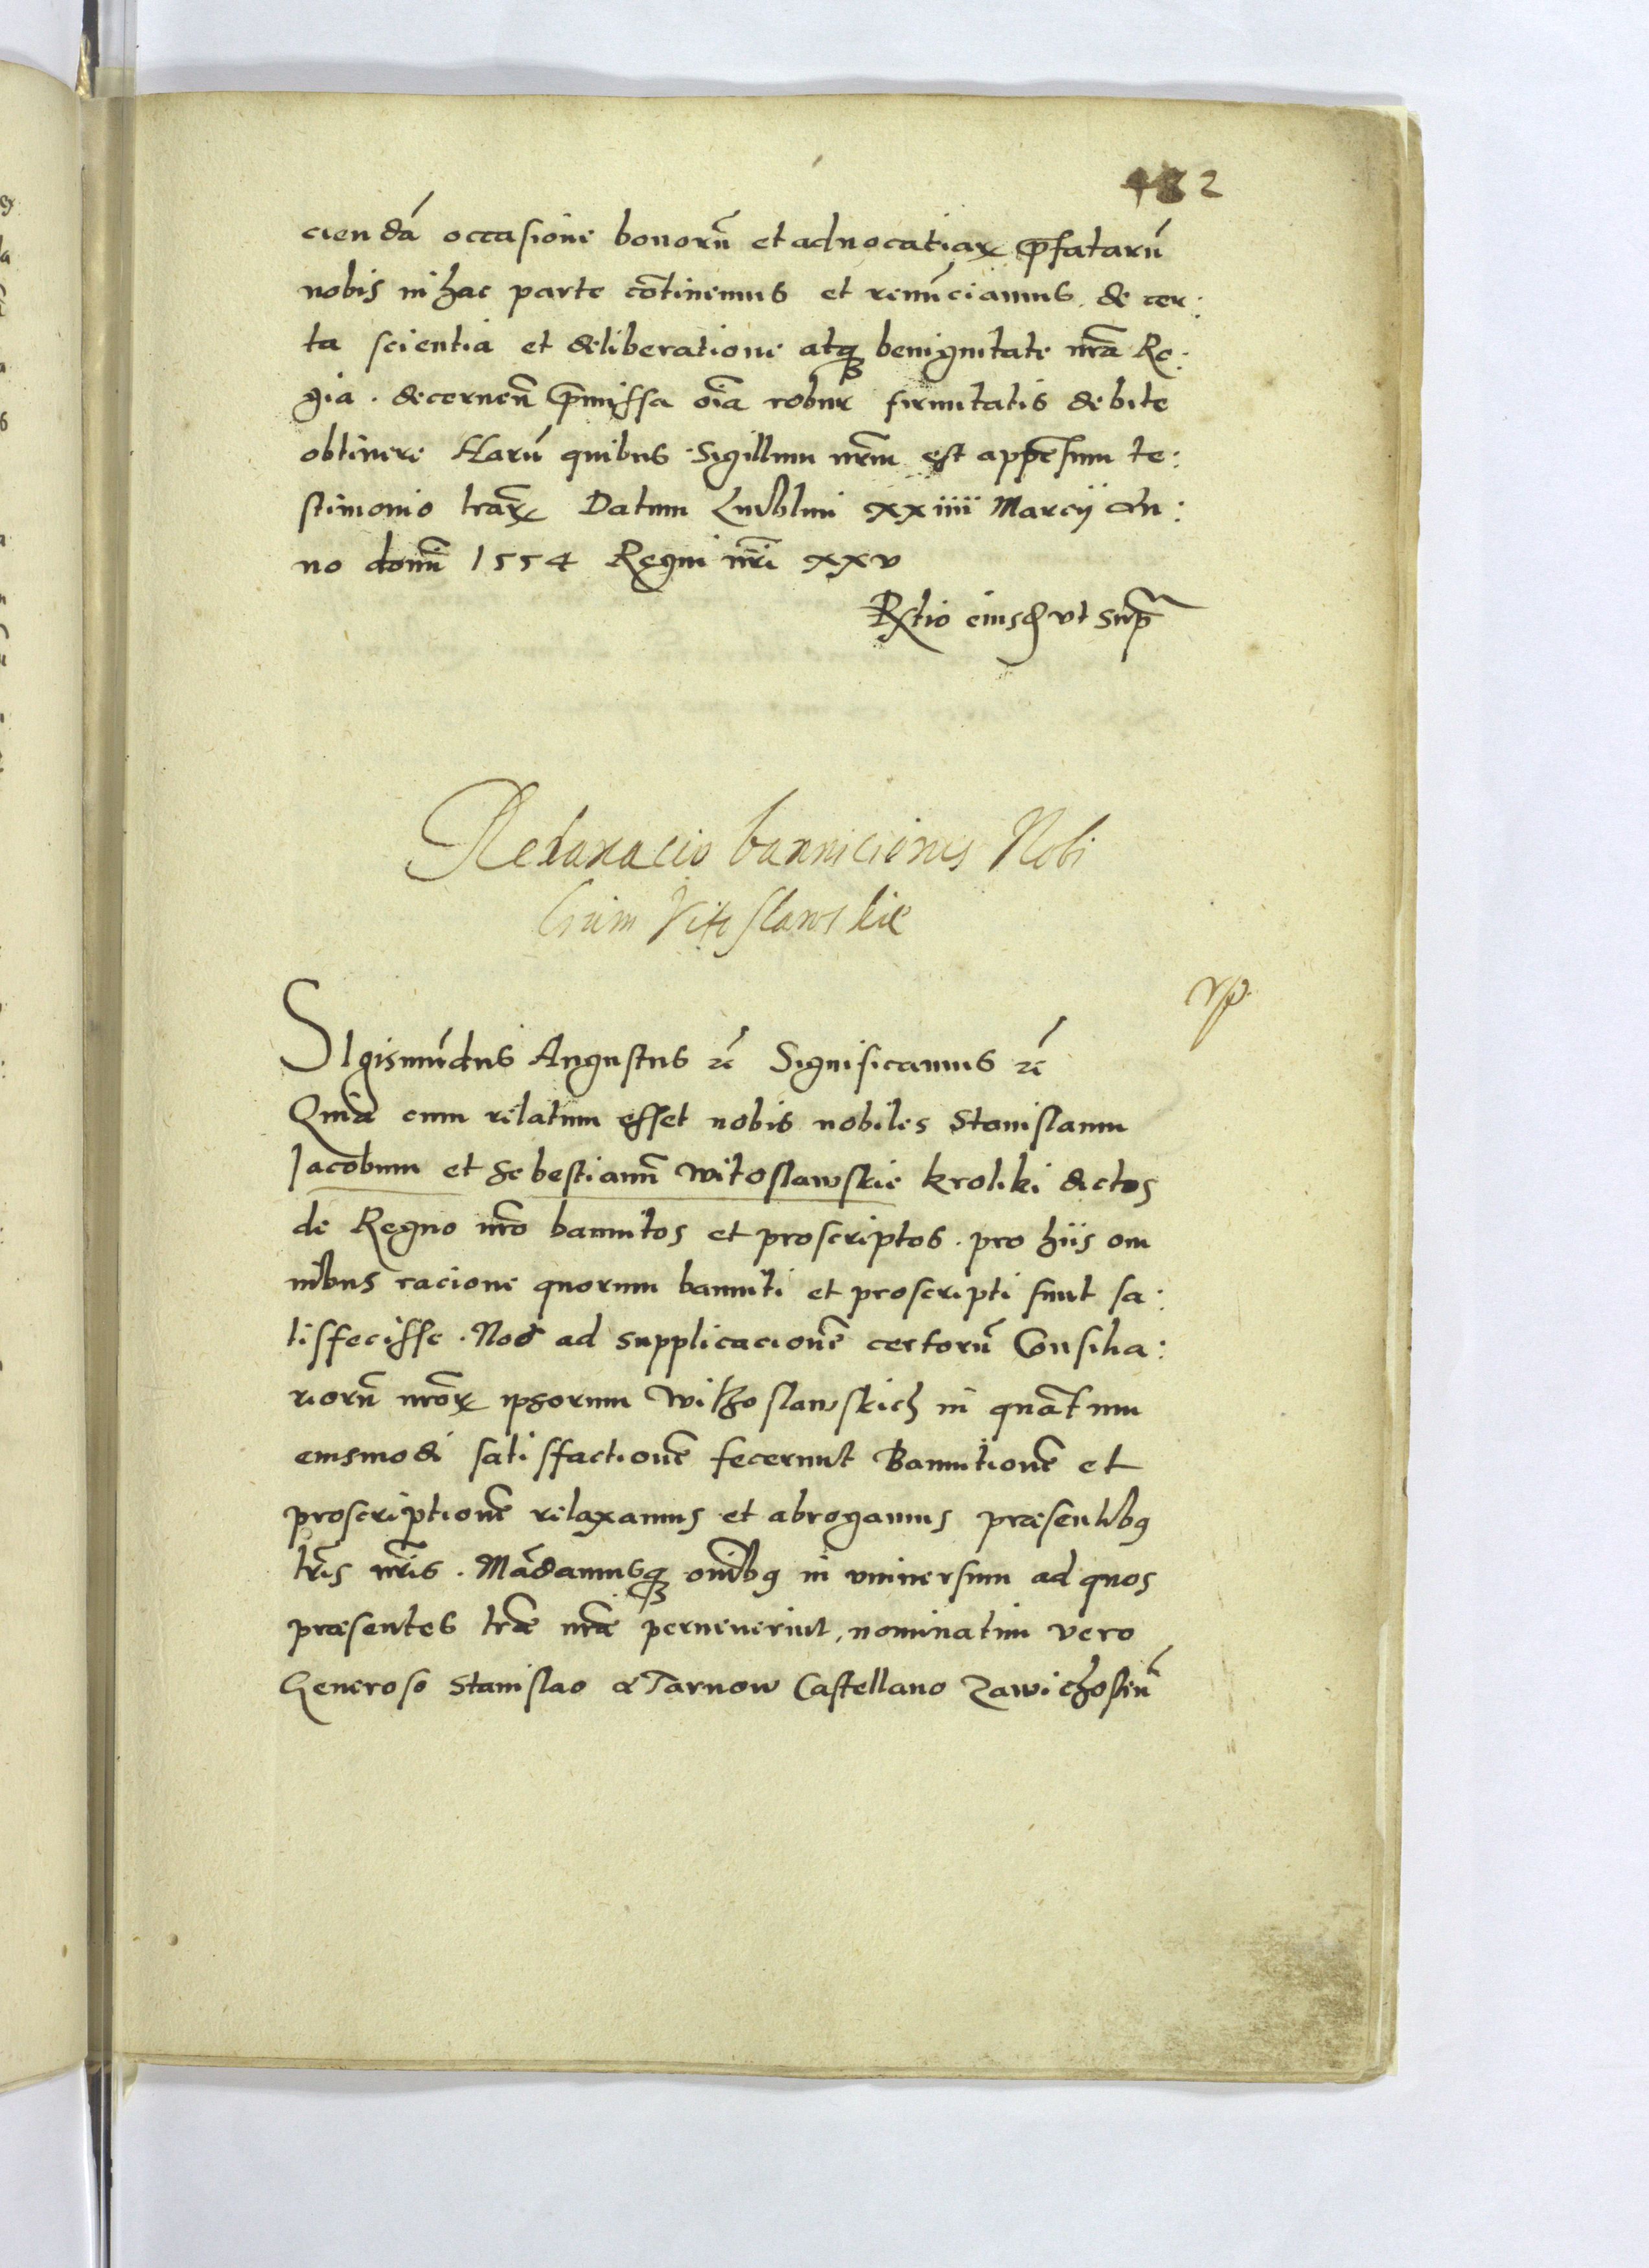 482
ciendā occasione bonorū et advocatiarꝝ p̄fatarū
nobis in hac parte cōtinemus et renūciamus. de cer:
ta scientia et deliberatione atqꝫ benignitate nr̄a Re:
gia. decernen̄ p̄missa oīa robur firmitatis debite
obtinere Harū quibus Sigillum nr̄m est appēsum te:
stimonio lr̄arꝝ Datum Lublini xxiiii Marcij An:
no domī 1554 Regni nr̄i xxv
Rꝉtio eiusdꝫ ut supꝛ
Relaxacio bannicionis Nobi
lium Vitoslawskie
SIgismūdus Augustus ⁊c̄ Significamus ⁊c̄
Quia cum relatum esset nobis nobiles Stanislaum
Jacobum et Sebestianū Witoslawskie kroliki dictos
de Regno nr̄o bannitos et proscriptos. pro hiis om
nibus racione quorum banniti et proscripti sunt sa:
tisfecisse. Nos ad supplicacionē certorū Consilia:
riorū nr̄orꝝ ipsorum Withoslawskich in quātum
eiusmodi satisfactionē fecerunt Bannitionē et
proscriptionē relaxamus et abrogamus præsentibꝯ
lr̄is nr̄is. Mādamusqꝫ oīnibꝯ in universum ad quos
præsentes lr̄æ nr̄æ pervenerint, nominatim vero
Generoso Stanislao a Tarnow Castellano Zawichosteū